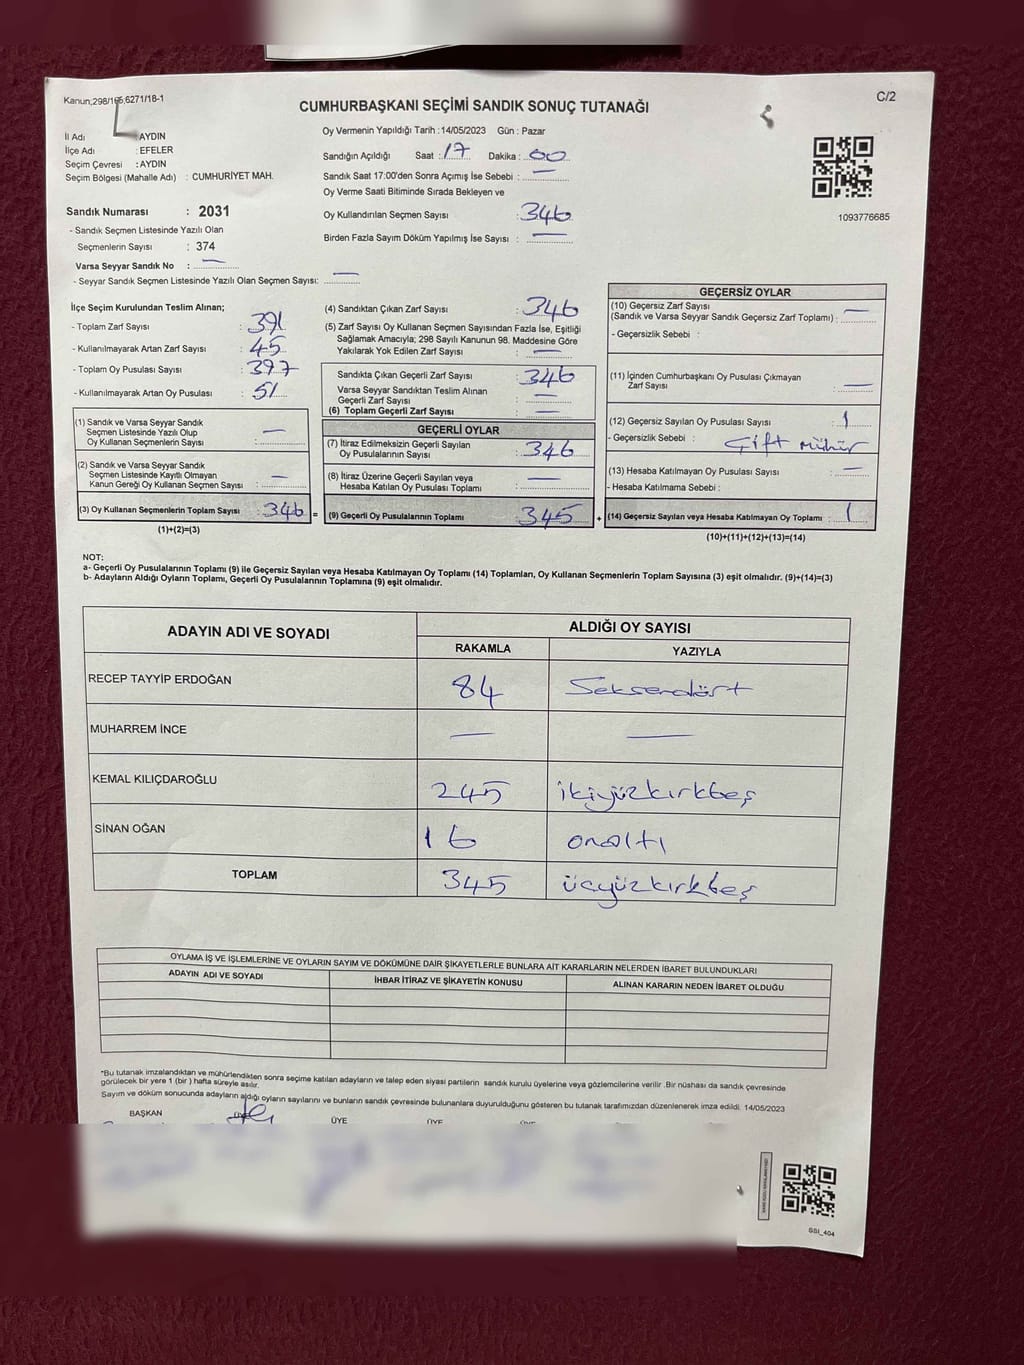 Kanun;298/165,6271/18-1
CUMHURBAŞKANI SEÇİMİ SANDIK SONUÇ TUTANAĞI
C/2
İl Adı : AYDIN
İlçe Adı : EFELER
Seçim Çevresi : AYDIN
Seçim Bölgesi (Mahalle Adı) : CUMHURİYET MAH.
Sandık Numarası : 2031
- Sandık Seçmen Listesinde Yazılı Olan
Seçmenlerin Sayısı : 374
Varsa Seyyar Sandık No : —
- Seyyar Sandık Seçmen Listesinde Yazılı Olan Seçmen Sayısı: —
Oy Vermenin Yapıldığı Tarih : 14/05/2023 Gün : Pazar
Sandığın Açıldığı Saat : 17 Dakika : 00
Sandık Saat 17:00'den Sonra Açımış İse Sebebi : —
Oy Verme Saati Bitiminde Sırada Bekleyen ve
Oy Kullandırılan Seçmen Sayısı : 346
Birden Fazla Sayım Döküm Yapılmış İse Sayısı : —
1093776685
İlçe Seçim Kurulundan Teslim Alınan;
- Toplam Zarf Sayısı : 391
- Kullanılmayarak Artan Zarf Sayısı : 45
- Toplam Oy Pusulası Sayısı : 397
- Kullanılmayarak Artan Oy Pusulası : 51
(1) Sandık ve Varsa Seyyar Sandık
Seçmen Listesinde Yazılı Olup
Oy Kullanan Seçmenlerin Sayısı : —
(2) Sandık ve Varsa Seyyar Sandık
Seçmen Listesinde Kayıtlı Olmayan
Kanun Gereği Oy Kullanan Seçmen Sayısı : —
(3) Oy Kullanan Seçmenlerin Toplam Sayısı : 346 =
(1)+(2)=(3)
(4) Sandıktan Çıkan Zarf Sayısı : 346
(5) Zarf Sayısı Oy Kullanan Seçmen Sayısından Fazla İse, Eşitliği
Sağlamak Amacıyla; 298 Sayılı Kanunun 98. Maddesine Göre
Yakılarak Yok Edilen Zarf Sayısı : —
Sandıkta Çıkan Geçerli Zarf Sayısı : 346
Varsa Seyyar Sandıktan Teslim Alınan
Geçerli Zarf Sayısı : —
(6) Toplam Geçerli Zarf Sayısı : —
GEÇERLİ OYLAR
(7) İtiraz Edilmeksizin Geçerli Sayılan
Oy Pusulalarının Sayısı : 346
(8) İtiraz Üzerine Geçerli Sayılan veya
Hesaba Katılan Oy Pusulası Toplamı : —
(9) Geçerli Oy Pusulalarının Toplamı : 345 +
GEÇERSİZ OYLAR
(10) Geçersiz Zarf Sayısı
(Sandık ve Varsa Seyyar Sandık Geçersiz Zarf Toplamı) : —
- Geçersizlik Sebebi :
(11) İçinden Cumhurbaşkanı Oy Pusulası Çıkmayan
Zarf Sayısı : —
(12) Geçersiz Sayılan Oy Pusulası Sayısı : 1
- Geçersizlik Sebebi : Çift Mühür
(13) Hesaba Katılmayan Oy Pusulası Sayısı : —
- Hesaba Katılmama Sebebi :
(14) Geçersiz Sayılan veya Hesaba Katılmayan Oy Toplamı : 1
(10)+(11)+(12)+(13)=(14)
NOT:
a- Geçerli Oy Pusulalarının Toplamı (9) ile Geçersiz Sayılan veya Hesaba Katılmayan Oy Toplamı (14) Toplamları, Oy Kullanan Seçmenlerin Toplam Sayısına (3) eşit olmalıdır. (9)+(14)=(3)
b- Adayların Aldığı Oyların Toplamı, Geçerli Oy Pusulalarının Toplamına (9) eşit olmalıdır.
ADAYIN ADI VE SOYADI ALDIĞI OY SAYISI
RAKAMLA YAZIYLA
RECEP TAYYİP ERDOĞAN 84 Seksendört
MUHARREM İNCE — —
KEMAL KILIÇDAROĞLU 245 ikiyüzkırkbeş
SİNAN OĞAN 16 onaltı
TOPLAM 345 üçyüzkırkbeş
OYLAMA İŞ VE İŞLEMLERİNE VE OYLARIN SAYIM VE DÖKÜMÜNE DAİR ŞİKAYETLERLE BUNLARA AİT KARARLARIN NELERDEN İBARET BULUNDUKLARI
ADAYIN ADI VE SOYADI İHBAR İTİRAZ VE ŞİKAYETİN KONUSU ALINAN KARARIN NEDEN İBARET OLDUĞU
*Bu tutanak imzalandıktan ve mühürlendikten sonra seçime katılan adayların ve talep eden siyasi partilerin sandık kurulu üyelerine veya gözlemcilerine verilir .Bir nüshası da sandık çevresinde
görülecek bir yere 1 (bir ) hafta süreyle asılır.
Sayım ve döküm sonucunda adayların aldığı oyların sayılarını ve bunların sandık çevresinde bulunanlara duyurulduğunu gösteren bu tutanak tarafımızdan düzenlenerek imza edildi. 14/05/2023
BAŞKAN ÜYE ÜYE ÜYE ÜYE
GSI_404